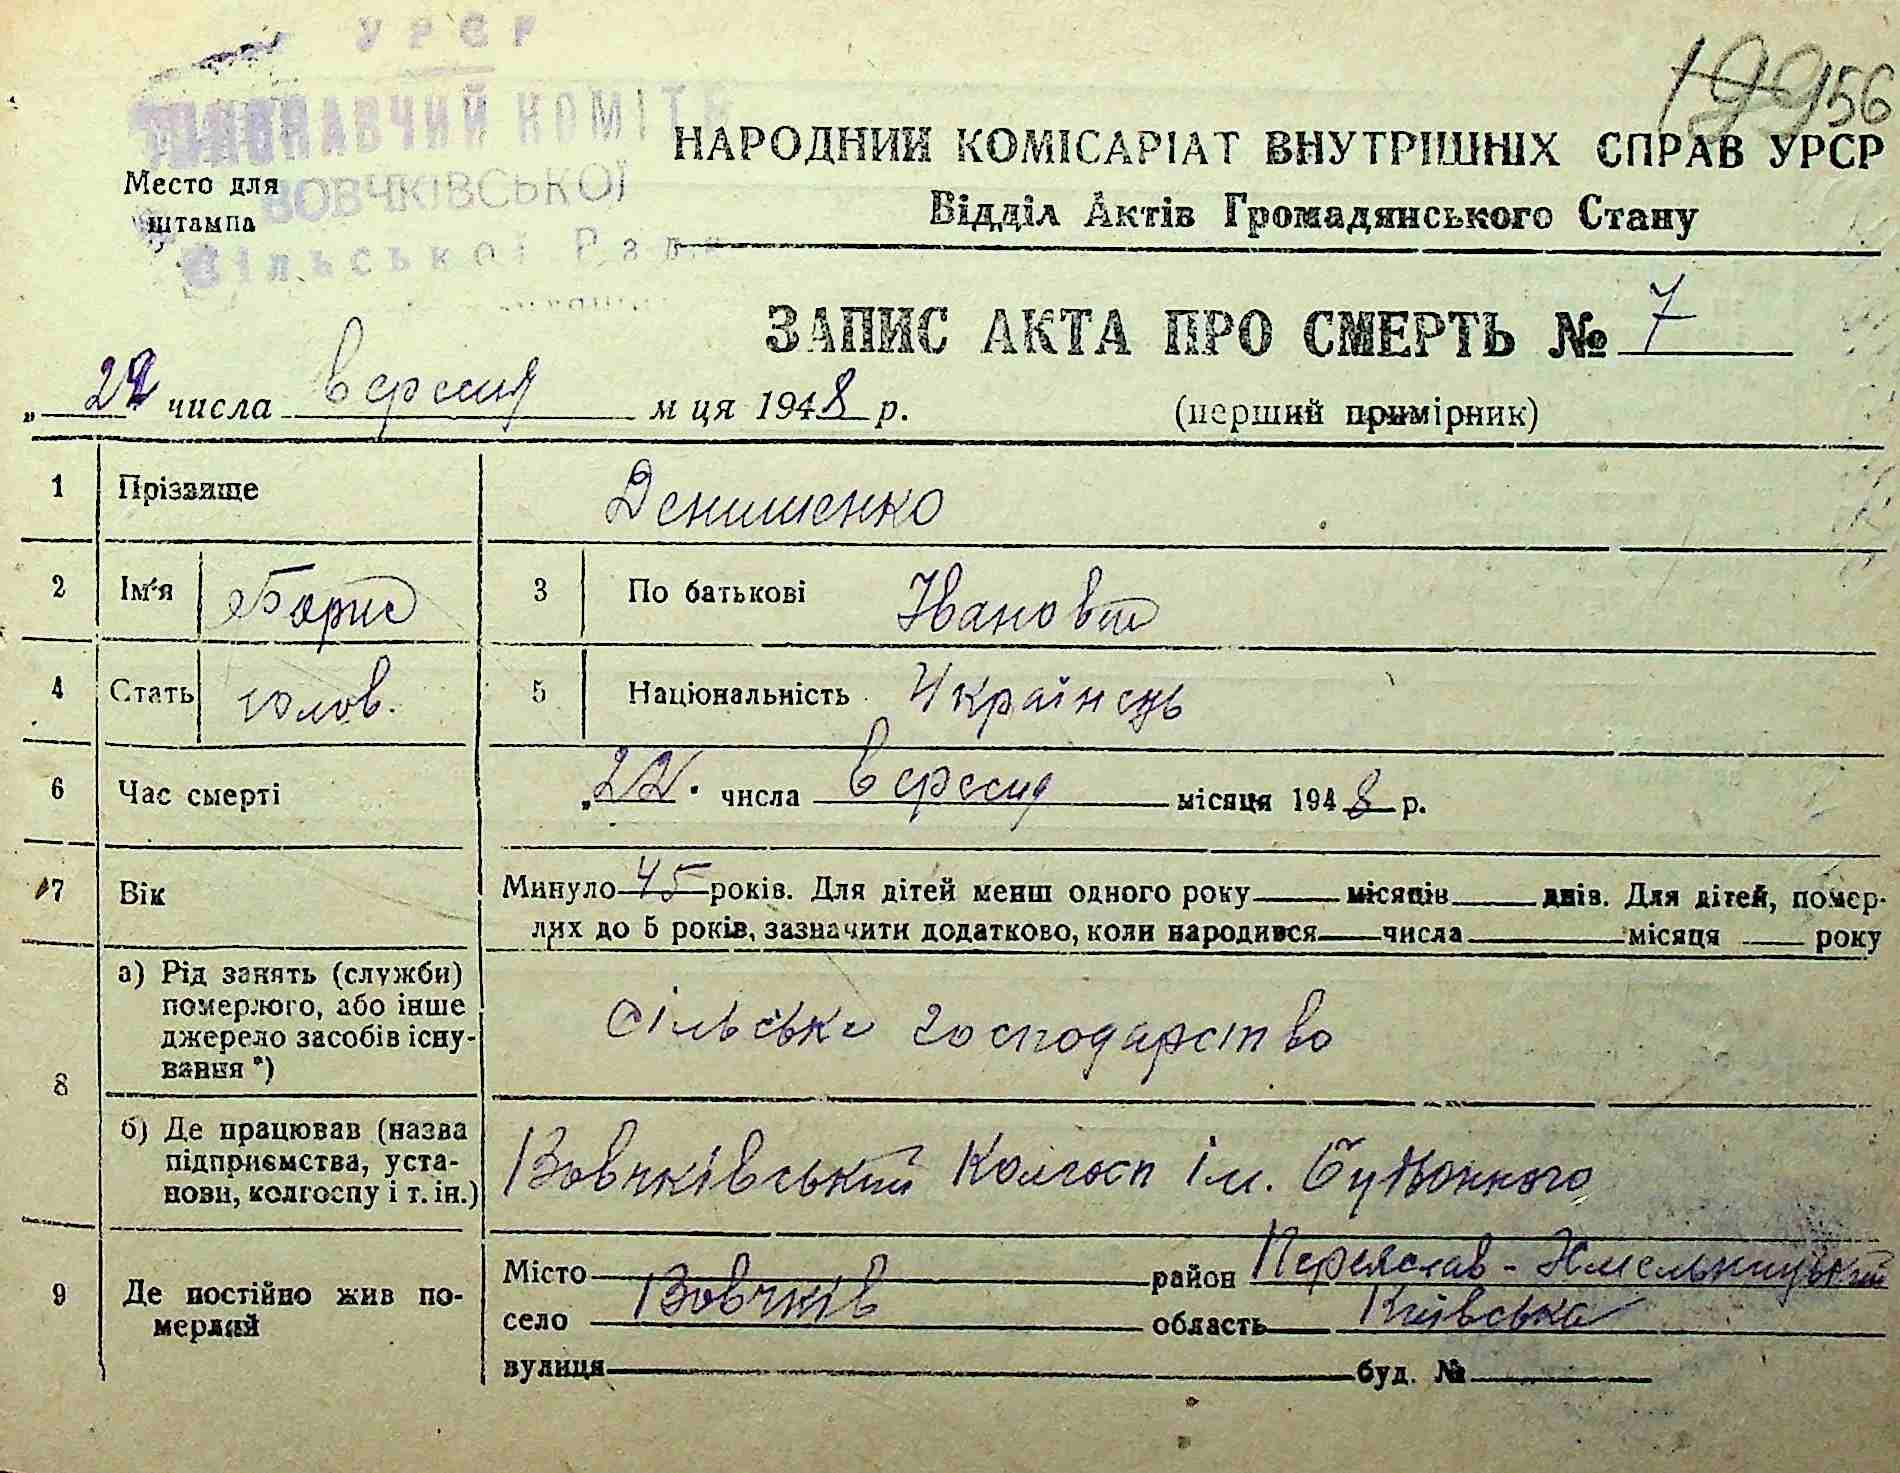 УРСР
ВИКОНАВЧИЙ КОМІТЕ
ВОВЧКІВСЬКОЇ
Сільської Рад
Место для
штампа
199 56
НАРОДНИЙ КОМІСАРІАТ ВНУТРІШНІХ СПРАВ УРСР
Відділ Актів Громадянського Стану
ЗАПИС АКТА ПРО СМЕРТЬ № 7
„ 22 числа вересня м ця 1948 р.
(перший примірник)
1 Прізвище Денишенко
2 Ім'я Борис 3 По батькові Іванович
4 Стать чолов. 5 Національність Українець
6 Час смерті „22. числа вересня місяця 1948 р.
7 Вік Минуло 45 років. Для дітей менш одного року місяців днів. Для дітей, помер-
лих до 5 років, зазначити додатково, коли народився числа місяця року
8 а) Рід занять (служби)
померлого, або інше
джерело засобів існу-
вання *)
сільське господарство
б) Де працював (назва
підприємства, уста-
нови, колгоспу і т. ін.)
Вовчківський Колгосп ім. Будьонного
9 Де постійно жив по-
мерлий
Місто район Переяслав-Хмельницький
село Вовчків область Київська
вулиця буд. №